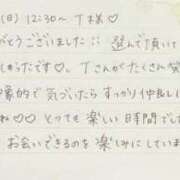 (日) 12:30～ T様♡
がとうございました :: 選んで頂いて
しゅったです♡。Tさんがたくさん笑
象的で気づいたらすっかり仲良し
ね♡♡ とっても楽しい時間でした
お会いできるのを楽しみにしていま